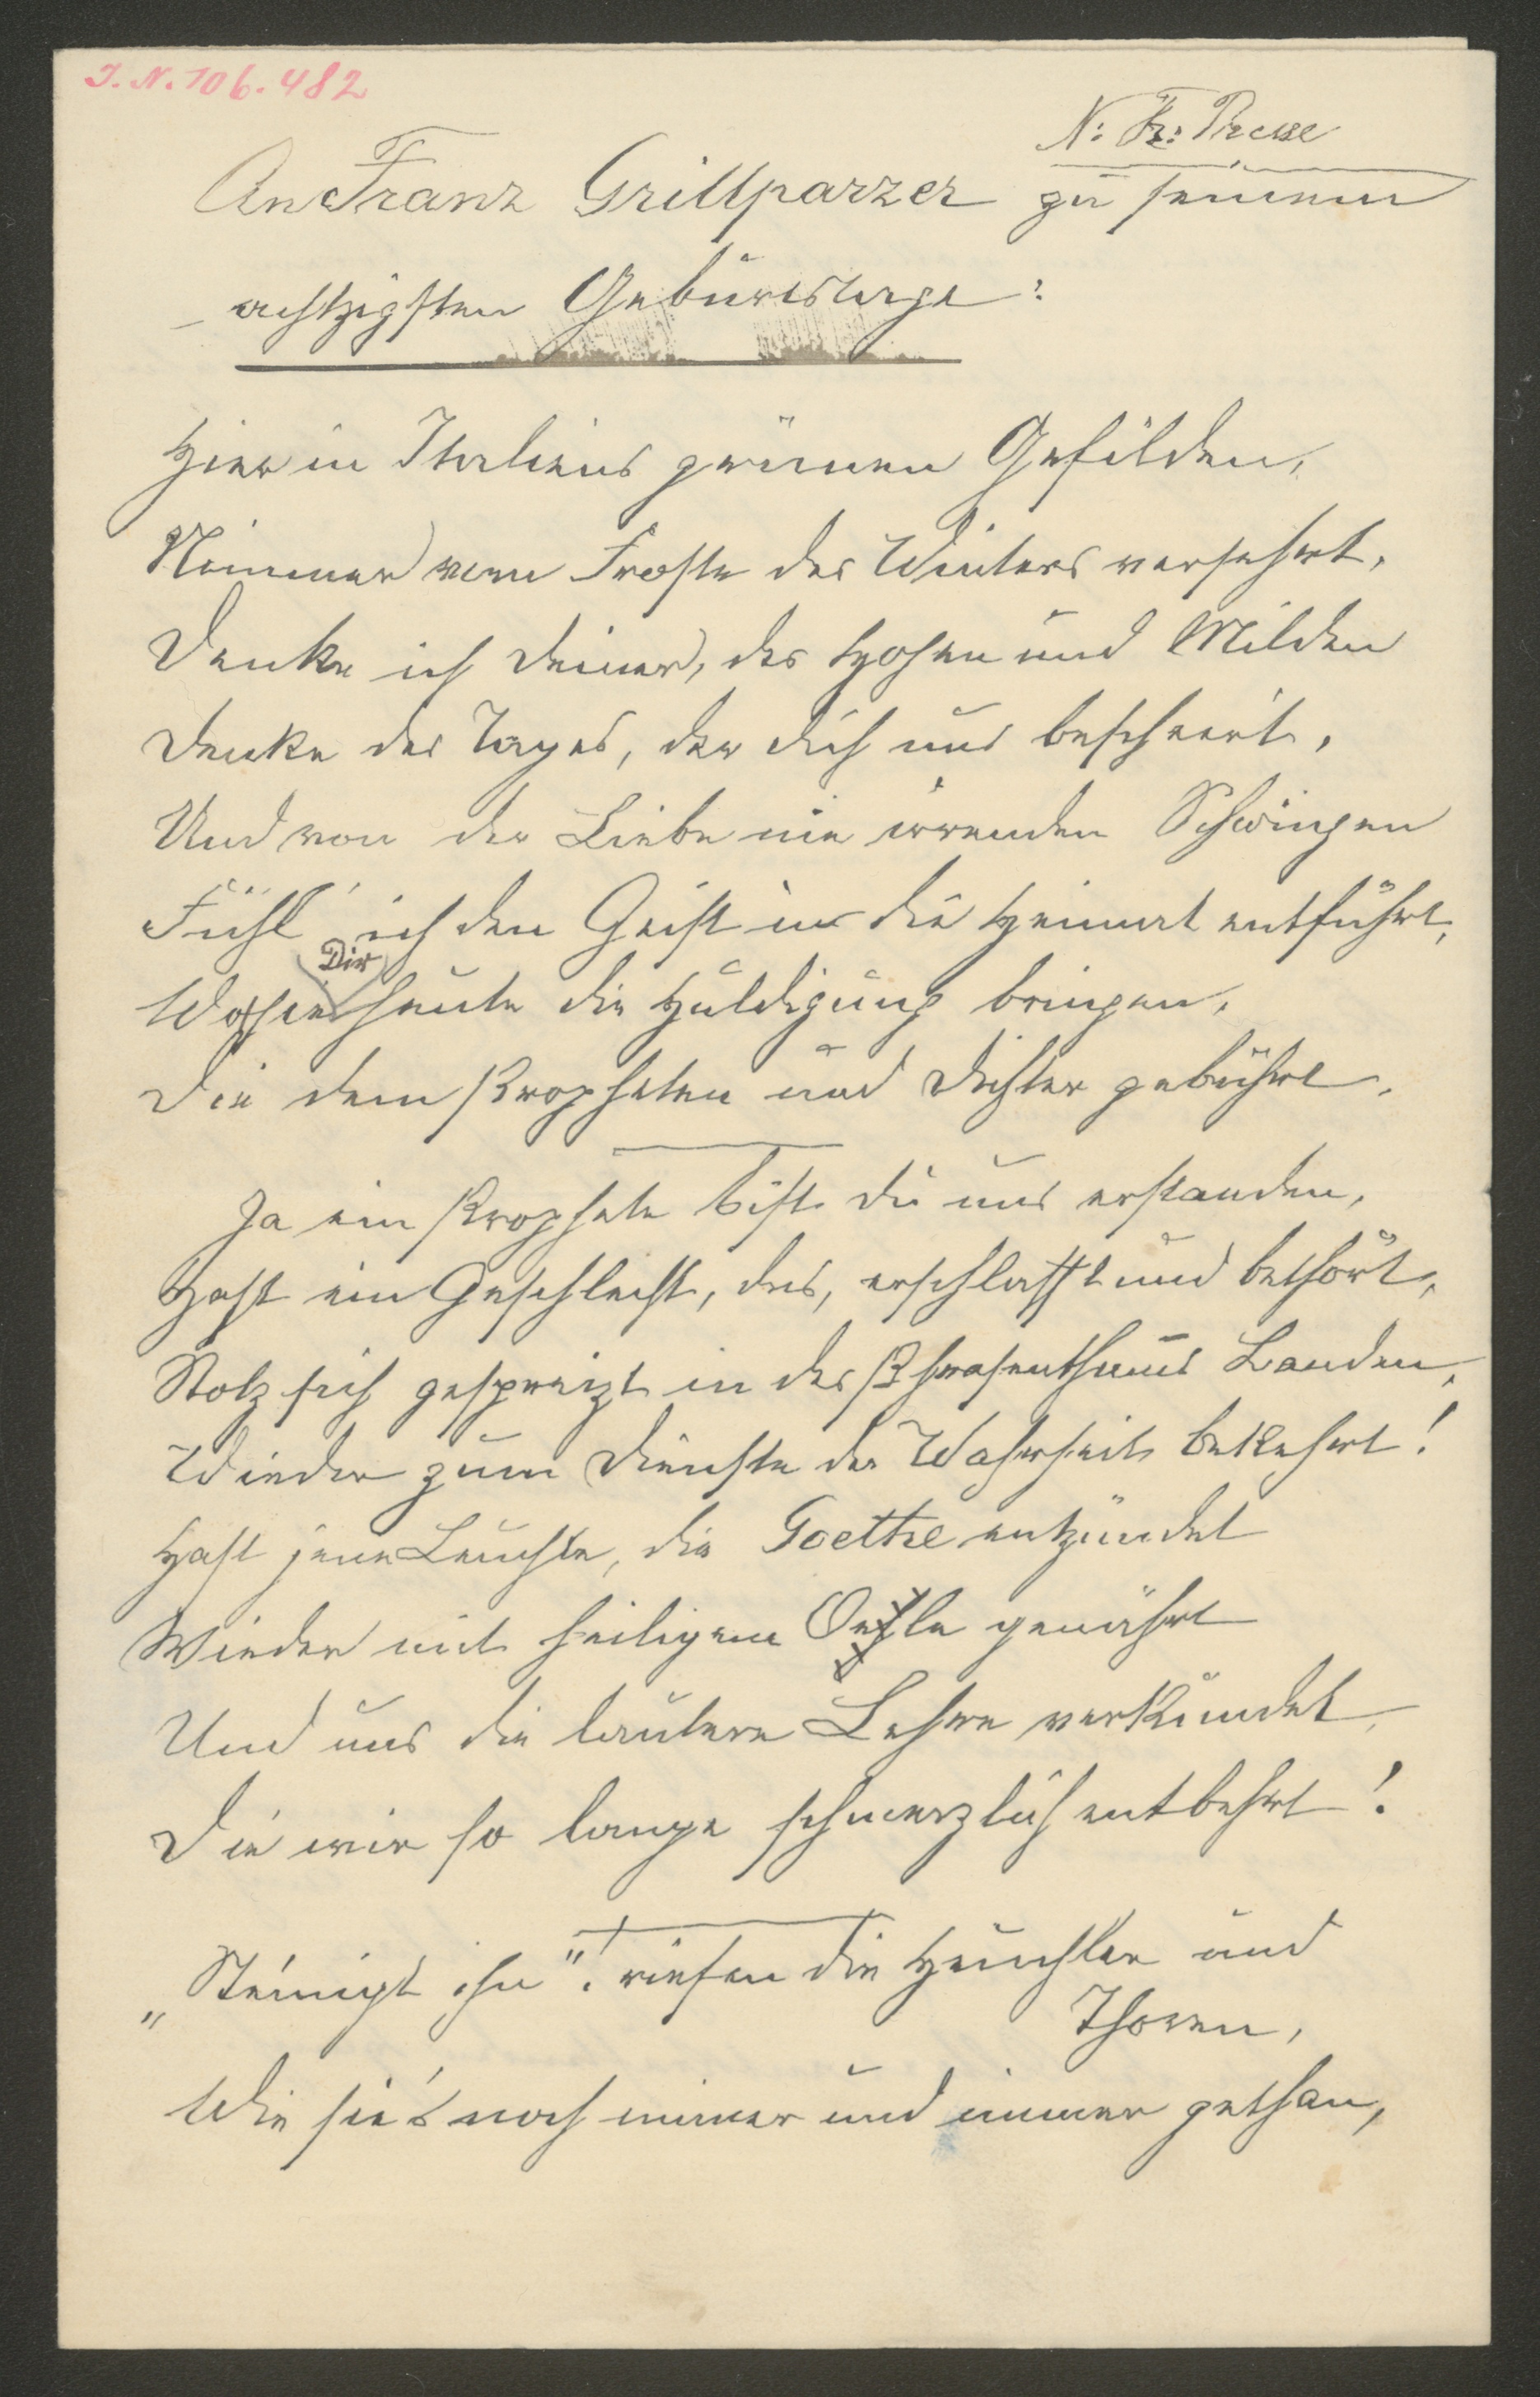 I. N. 106.482
N: Fr: Presse
An Franz Grillparzer zu seinem
achtzigsten Geburtstage:
Hier in Italiens grünen Gefilden,
Nimmer vom Froste des Winters versehrt,
Denke ich Deiner, des Hohen und Milden
Denke des Tages, der dich uns bescheert,
Und von der Liebe nie irrenden Schwingen
Fühl' ich den Geist in die Heimat entführt,
Dir
Wo sie heute die Huldigung bringen,
Die dem Propheten und Dichter gebührt.
Ja ein Prophete bist du uns erstanden,
Hast ein Geschlecht, das, erschlafft und bethört,
Stolz sich gespreizt in des Phrasenthums Banden,
Wieder zum Dienste der Wahrheit bekehrt!
Hast jene Leuchte, die Goethe entzündet
Wieder mit heiligem Oele genährt
Und uns die lautere Lehre verkündet,
Die wir so lange schmerzlich entbehrt!
„Steinigt ihn"! riefen die Heuchler und
Thoren,
Wie sie's noch immer und immer gethan,